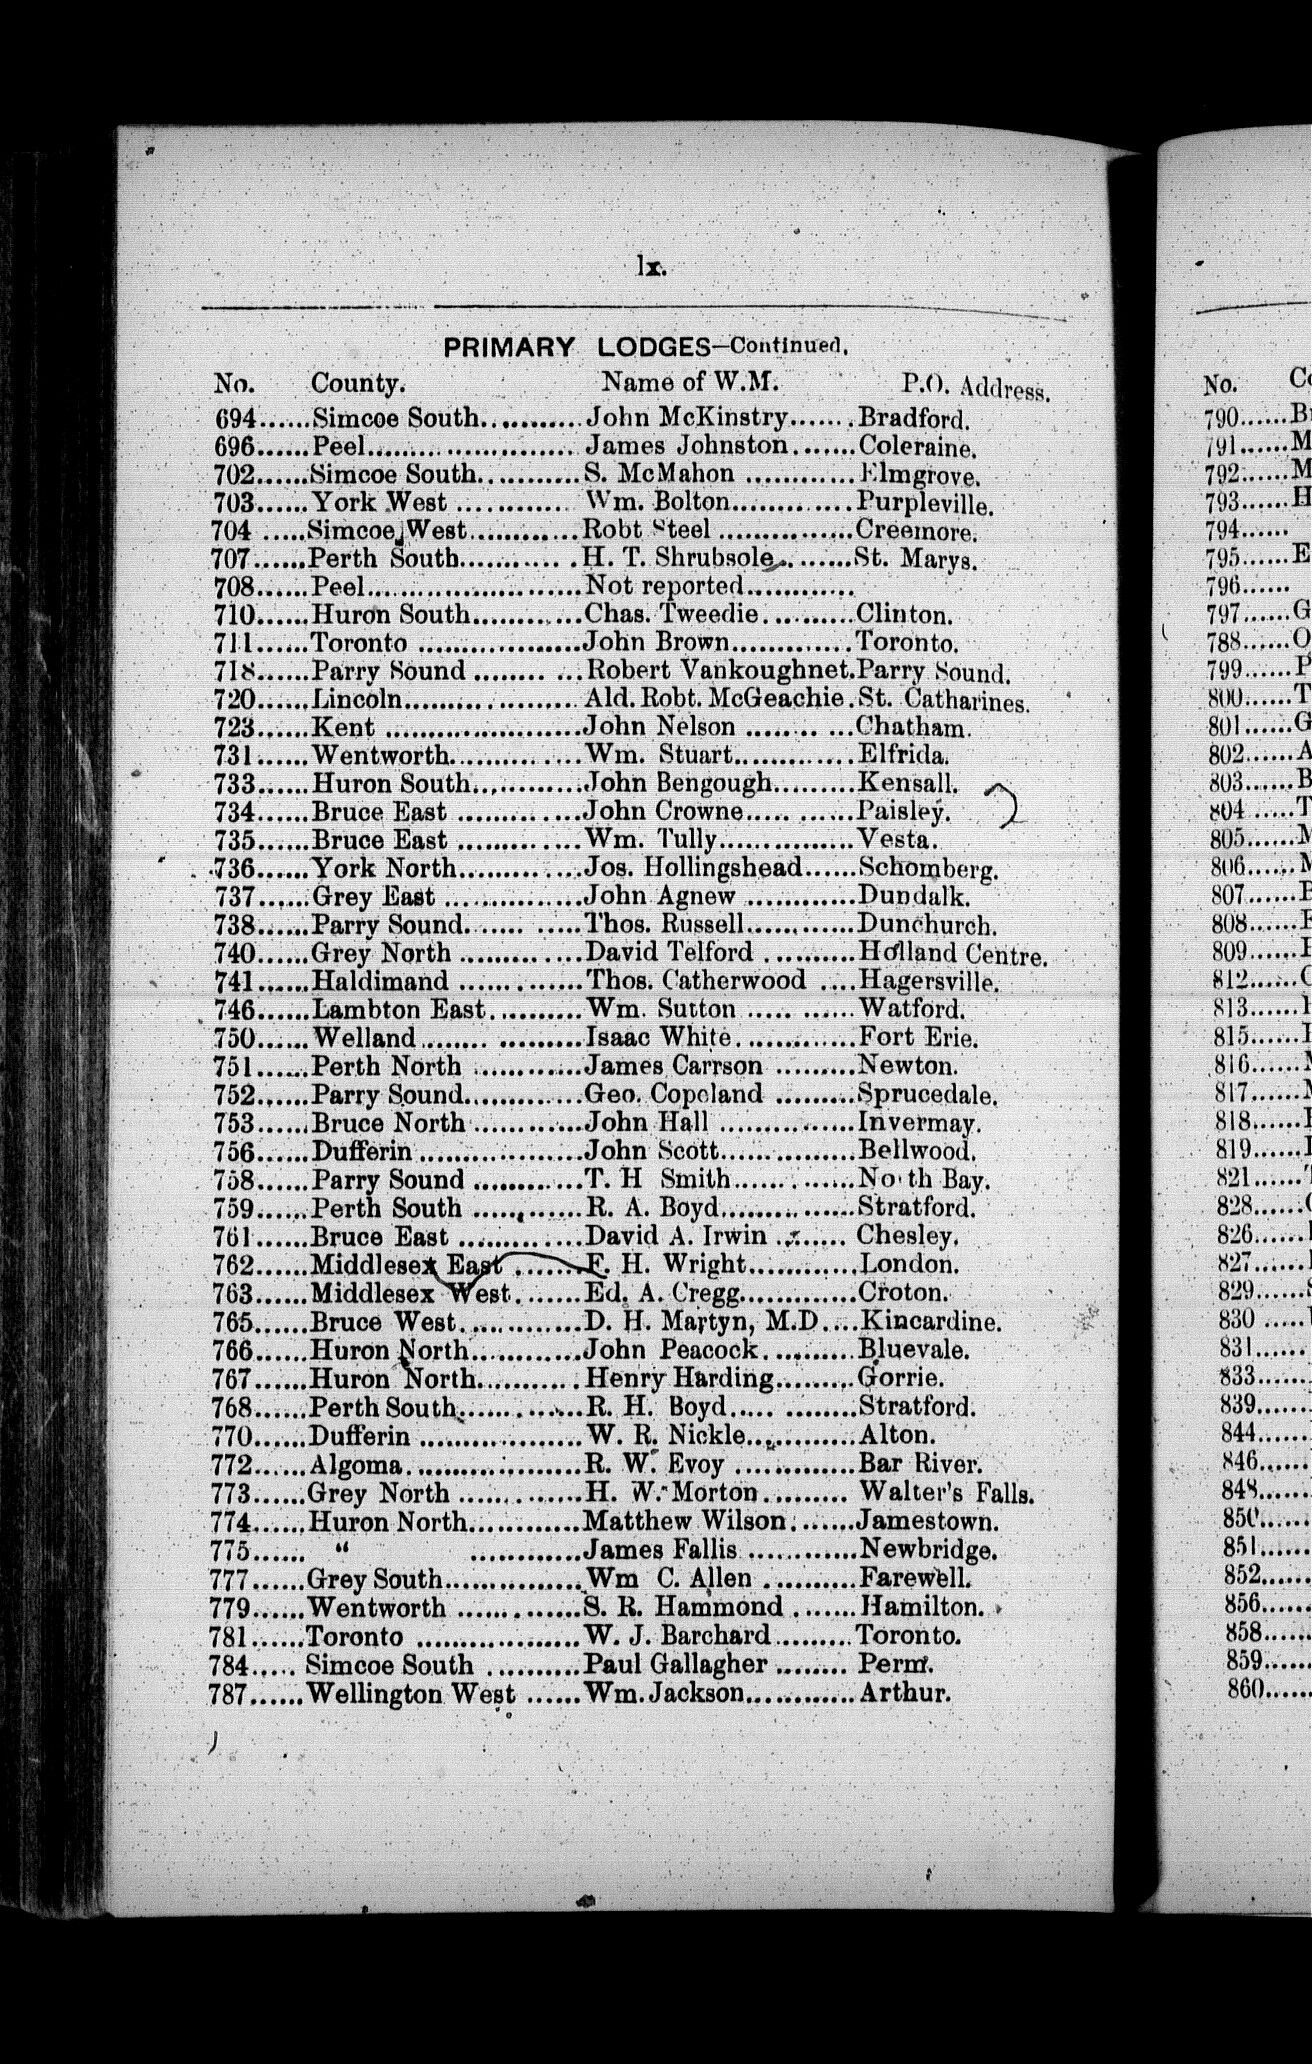 lx.
PRIMARY LODGES—Continued.
No. County. Name of W.M. P.O. Address.
694......Simcoe South...........John McKinstry.......Bradford.
696......Peel.......................James Johnston.......Coleraine.
702......Simcoe South...........S. McMahon ............Elmgrove.
703......York West ..............Wm. Bolton.............Purpleville.
704 .....Simcoe West............Robt Steel ...............Creemore.
707......Perth South.............H. T. Shrubsole.........St. Marys.
708......Peel.......................Not reported............
710......Huron South............Chas. Tweedie..........Clinton.
711......Toronto ..................John Brown.............Toronto.
718......Parry Sound ...........Robert Vankoughnet.Parry Sound.
720......Lincoln...................Ald. Robt. McGeachie.St. Catharines.
723......Kent ......................John Nelson ...........Chatham.
731......Wentworth...............Wm. Stuart.............Elfrida.
733......Huron South............John Bengough.........Kensall.
734......Bruce East ..............John Crowne............Paisley.
735......Bruce East ..............Wm. Tully...............Vesta.
736......York North..............Jos. Hollingshead......Schomberg.
737......Grey East ...............John Agnew ............Dundalk.
738......Parry Sound............Thos. Russell............Dunchurch.
740......Grey North .............David Telford ..........Holland Centre.
741......Haldimand .............Thos. Catherwood ....Hagersville.
746......Lambton East..........Wm. Sutton ...........Watford.
750......Welland.................Isaac White.............Fort Erie.
751......Perth North ............James Carrson .........Newton.
752......Parry Sound.............Geo. Copeland .........Sprucedale.
753......Bruce North ............John Hall ...............Invermay.
756......Dufferin..................John Scott...............Bellwood.
758......Parry Sound ............T. H Smith.............No th Bay.
759......Perth South ............R. A. Boyd..............Stratford.
761......Bruce East ..............David A. Irwin ........Chesley.
762......Middlesex East ........F. H. Wright............London.
763......Middlesex West........Ed. A. Cregg.............Croton.
765......Bruce West..............D. H. Martyn, M.D....Kincardine.
766......Huron North............John Peacock..........Bluevale.
767......Huron North............Henry Harding.........Gorrie.
768......Perth South.............R. H. Boyd.............Stratford.
770......Dufferin ..................W. R. Nickle............Alton.
772......Algoma...................R. W. Evoy .............Bar River.
773......Grey North .............H. W. Morton.........Walter's Falls.
774......Huron North............Matthew Wilson.......Jamestown.
775...... “ ............James Fallis ............Newbridge.
777......Grey South...............Wm C. Allen ..........Farewell.
779......Wentworth .............S. R. Hammond .......Hamilton.
781......Toronto ..................W. J. Barchard.........Toronto.
784..... Simcoe South ..........Paul Gallagher ........Perm.
787......Wellington West ......Wm. Jackson............Arthur.
No.
790......
791......M
792......M
793......H
794......
795......E
796......
797......G
788......O
799......P
800......T
801......G
802......A
803......B
804 .....T
805......M
806......M
807......
808......
809......
812......
813......
815......
816......
817......
818......
819......
821......
828......
826......
827......
829......
830 .....
831......
833......
839......
844......
846......
848......
850......
851......
852......
856......
858......
859......
860......